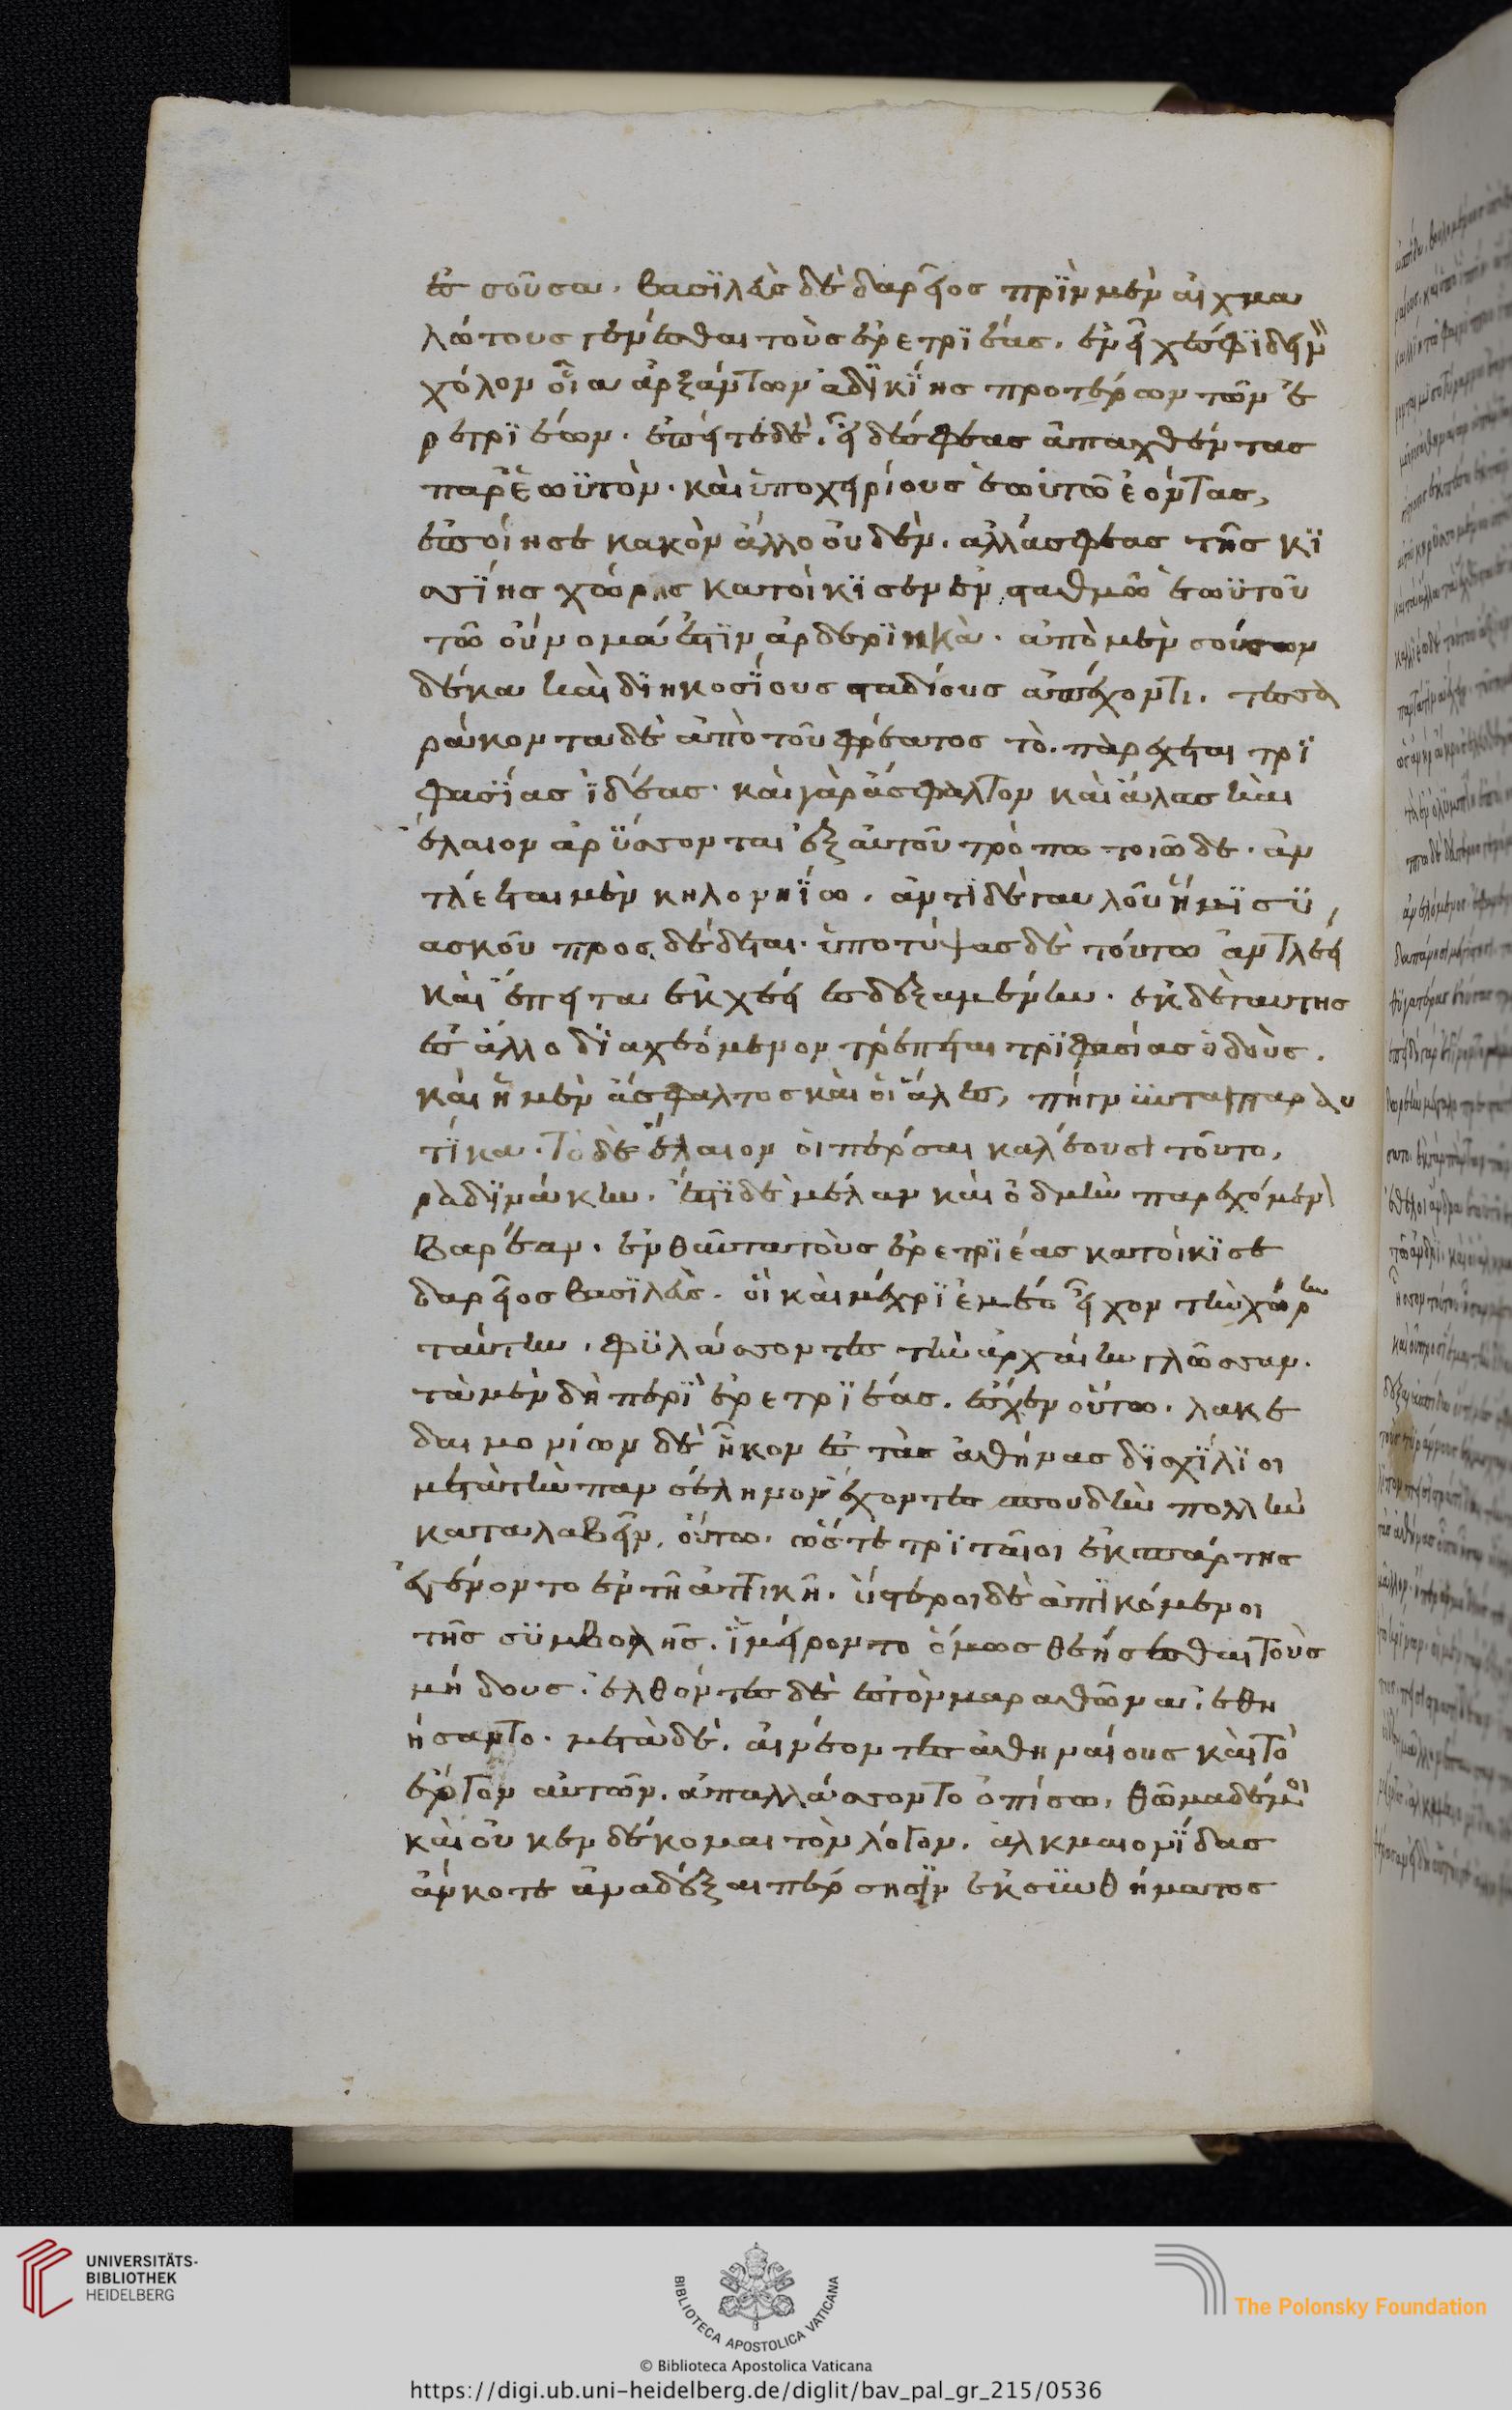 ἐς σοῦσα. βασϊλεὺς δὲ δαρεῖος πρϊὶν μὲν αἰχμα
λώτους γενέσθαι τοὺς ἐρετρϊέας. ἐνεῖχέ σφϊ δεινὸν
χόλον οἷα ἀρξάντων ἀδϊκίης προτέρων τῶν ἐ
ρετρϊέων. ἐπείτε δὲ, εἶδέ σφεας ἀπαχθέντας
παρ' ἑωϋτὸν. καὶ ὑποχειρίους ἑωυτῶ ἐόντας,
ἐποίησε κακὸν ἄλλο οὐδὲν. ἀλλά σφεας τῆς κϊ
σσίης χώρης κατοίκϊσεν ἐν σταθμῶ ἑωϋτοῦ
τῶ οὔνομά ἐστϊν ἀρδερϊηκὰ. ἀπὸ μὲν σούσων
δέκα καὶ δϊηκοσίους σταδίους ἀπέχοντι. τεσσε
ράκοντα δὲ ἀπὸ τοῦ φρέατος τὸ. παρέχεται τρϊ
φασίας ϊδέας. καὶ γὰρ ἄσφαλτον καὶ ἅλας καὶ
ἔλαιον ἀρϋσσονται ἐξ αὐτοῦ τρόπω τοιῶδε. ἀν
τλέεται μὲν κηλονηίω. ἀντὶ δὲ γαυλοῦ ἥμϊσϋ,
ασκοῦ προσδέδεται. ὑποτύψας δὲ τούτω ἀντλέει
καὶ ἔπειτα ἐκχέει ἐς δεξαμένην. ἐκ δὲ ταυτης
ἐς ἄλλο δϊαχεόμενον τρέπεται τρϊφασίας ὁδούς.
καὶ ἡ μὲν ἄσφαλτος καὶ οἱ ἅλες, πήγνϋνται παραυ
τίκα. τὸ δὲ ἔλαιον οἱ πέρσαι καλέουσι τοῦτο,
ραδϊνάκην. ἐστϊ δὲ μέλαν καὶ ὀδμὴν παρεχόμενον
βαρέαν. ἐνθαῦτα τοὺς ἐρετρϊέας κατοίκϊσε
δαρεῖος βασϊλεὺς. οἳ καὶ μέχρϊ ἐμέο εἶχον τὴν χώρην
ταύτην, φϋλάσσοντες τὴν ἀρχαίην γλῶσσαν.
τὰ μὲν δὴ περϊ ἐρετρϊέας. ἔσχεν οὕτω. λακε
δαιμονίων δὲ ἧκον ἐς τὰς ἀθήνας δϊσχϊλϊοι
μετὰ τὴν πανσέληνον ἔχοντες σπουδὴν πολλὴν
καταλαβεῖν, οὕτω. ὥστε τρϊταῖοι ἐκ σπάρτης
ἐγένοντο ἐν τῆ ἀττικῆ. ὕστεροι δὲ ἀπϊκόμενοι
τῆς σϋμβολῆς. ϊμείροντο ὅμως θεήσεσθαι τοὺς
μήδους. ἐλθόντες δὲ ἐς τὸν μαραθῶνα. ἐθη
ήσαντο. μετὰ δὲ, αἰνέοντες ἀθηναίους καὶ τὸ
ἔργον αὐτῶν. ἀπαλλάσσοντο ὀπίσω, θῶμα δέ μοι
καὶ οὐκ ἐνδέκομαι τὸν λόγον. ἀλκμαιονϊδας
ἄν κοτε ἀναδέξαι πέρσησϊν ἐκ σϋνθήματος
UNIVERSITÄTS-
BIBLIOTHEK
HEIDELBERG
BIBLIOTECA APOSTOLICA VATICANA
© Biblioteca Apostolica Vaticana
The Polonsky Foundation
https://digi.ub.uni-heidelberg.de/diglit/bav_pal_gr_215/0536